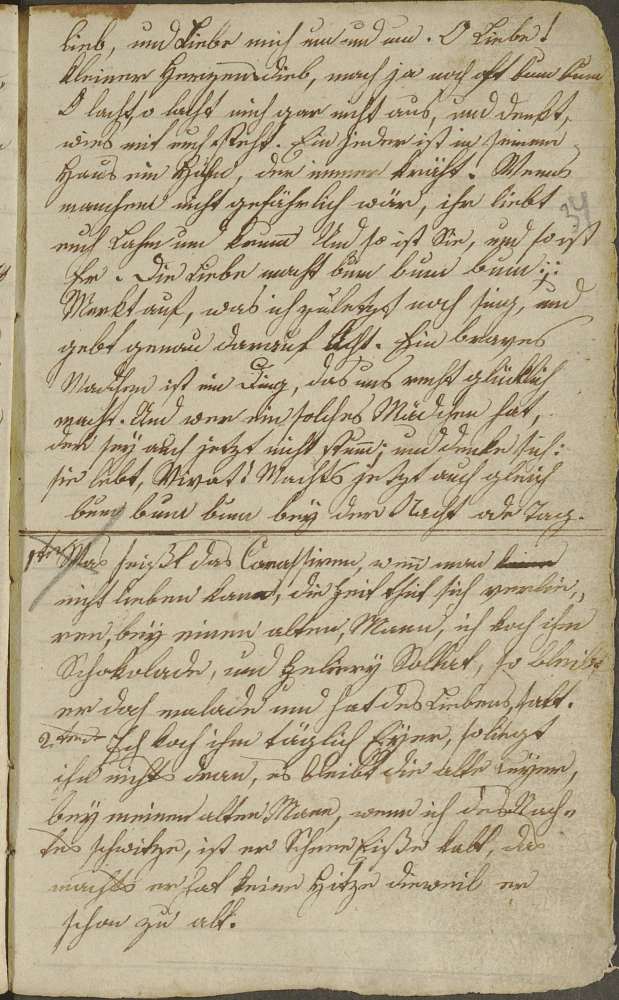 lieb, und Liebe mich um und um. O Liebe!
kleiner Herzensdieb, mach ja noch oft bum bum
O lacht, o lacht mich gar nicht aus, und denkt,
wies mit euch steht. Ein jeder ist in seinem
Haus ein Hahn, der immer kräht. Wenns
manchem nicht gefährlich wär, ihr liebt
euch Lahm und krumm Und so ist Sie, und so ist
Er. Die Liebe macht bum bum bum :/:
34
Merkt auf, was ich zuletzt noch sing, und
gebt genau darauf Acht. Ein braves
Mädchen ist ein Ding, das uns recht glücklich
macht. Und wer ein solches Mädchen hat,
der sey auch jetzt nicht stum̅; und denke sich:
sie lebt, Vivat! Machts jetzt auch gleich
bum bum bum bey der Nacht ode Tag.
1tens Was heißt das Caressiren, wen̅ man
nicht lieben kann, die Zeit thut sich verlie„
ren, bey einen alten, Mann, ich koch ihm
Schokolade, und Sallat, so bleibt
er doch malade und hat des Liebens satt.
2tens Ich koch ihm täglich Eyer, so liegt
ihm nichts dran, es bleibt die alte Leyer,
bey meinem alten Mann, wenn ich des Nach„
tes schwitze, ist er kalt, das
machts er hat keine Hitze dieweil er
schon zu alt.